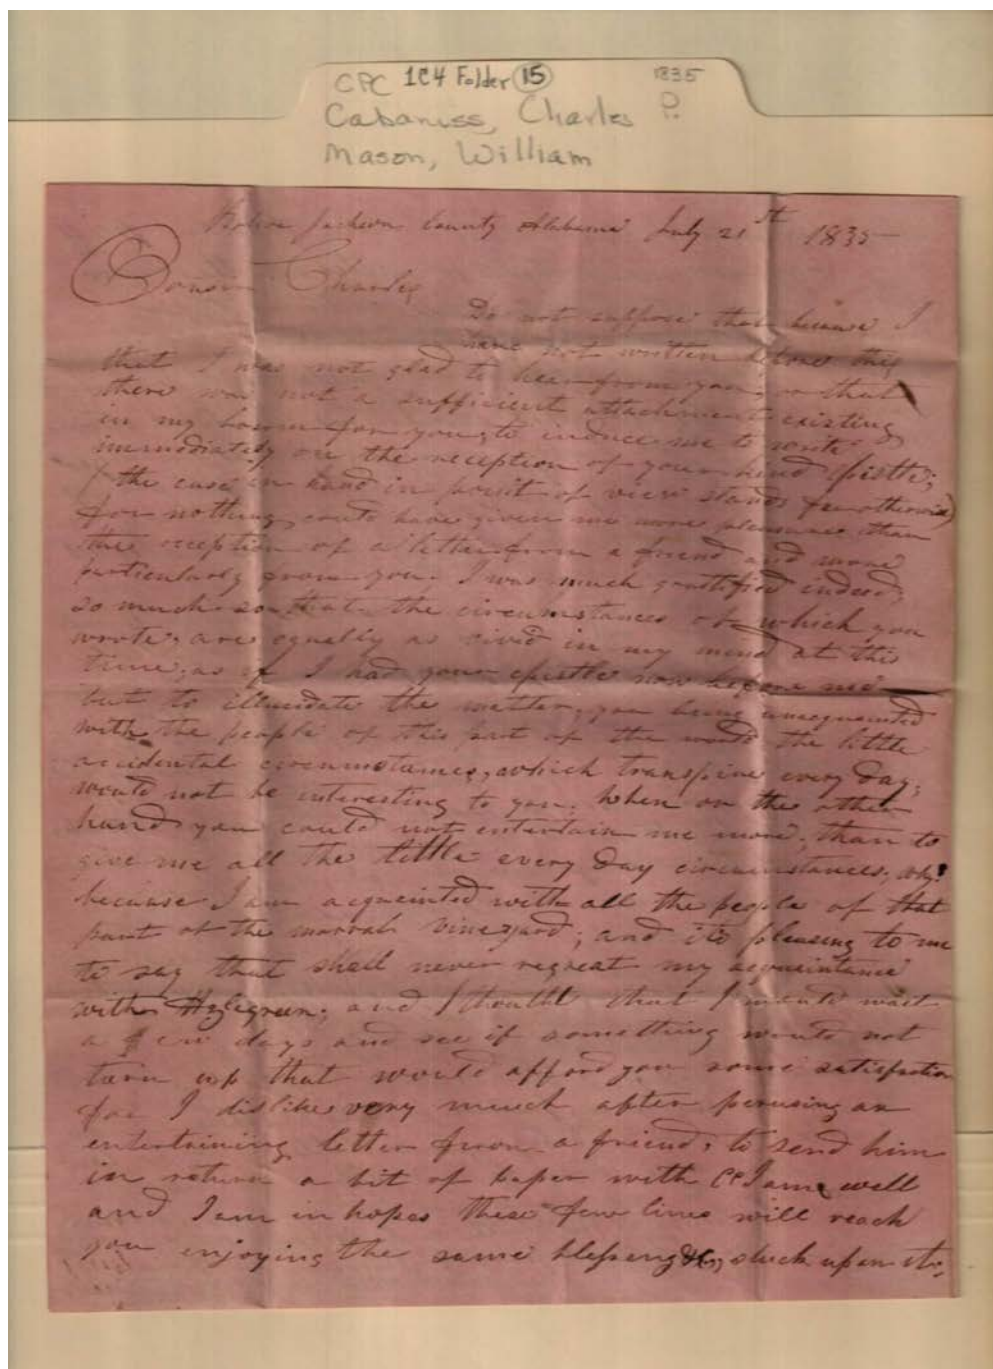 CPC 1C4 Folder 15 1835
Cabaniss, Charles P.
Mason, William
Jackson County Alabama July 21st 1835
Cousin Charles
Do not suppose that because I
have not written before this
that I was not glad to hear from you, or that
there was not a sufficient attachment existing
in my bosom for you, to induce me to write
immediately on the reception of your kind epistle;
(the case in hand in point of view stands far otherwise)
for nothing could have given me more pleasure than
the reception of a letter from a friend and more
particularly from you. I was much gratified indeed,
so much so that the circumstances of which you
wrote, are equally as vivid in my mind at this
time, as if I had your epistle now before me
but to illucidate the matter, you being unacquainted
with the people of this part of the world the little
accidental circumstances, which transpire every day,
would not be interesting to you, when on the other
hand you could not entertain me more, than to
give me all the little every day circumstances, why!
because I am acquainted with all the people of that
part of the morral vineyard; and its pleasing to me
to say that shall never regreat my acquaintance
with and I thought that I would wait
a few days and see if something would not
turn up that would afford you some satisfaction
for I dislike very much after perusing an
entertaining letter from a friend, to send him
in return a bit of paper with "I am well
and I am in hopes these few lines will reach
you enjoying the same blessing &c, stuck upon it.